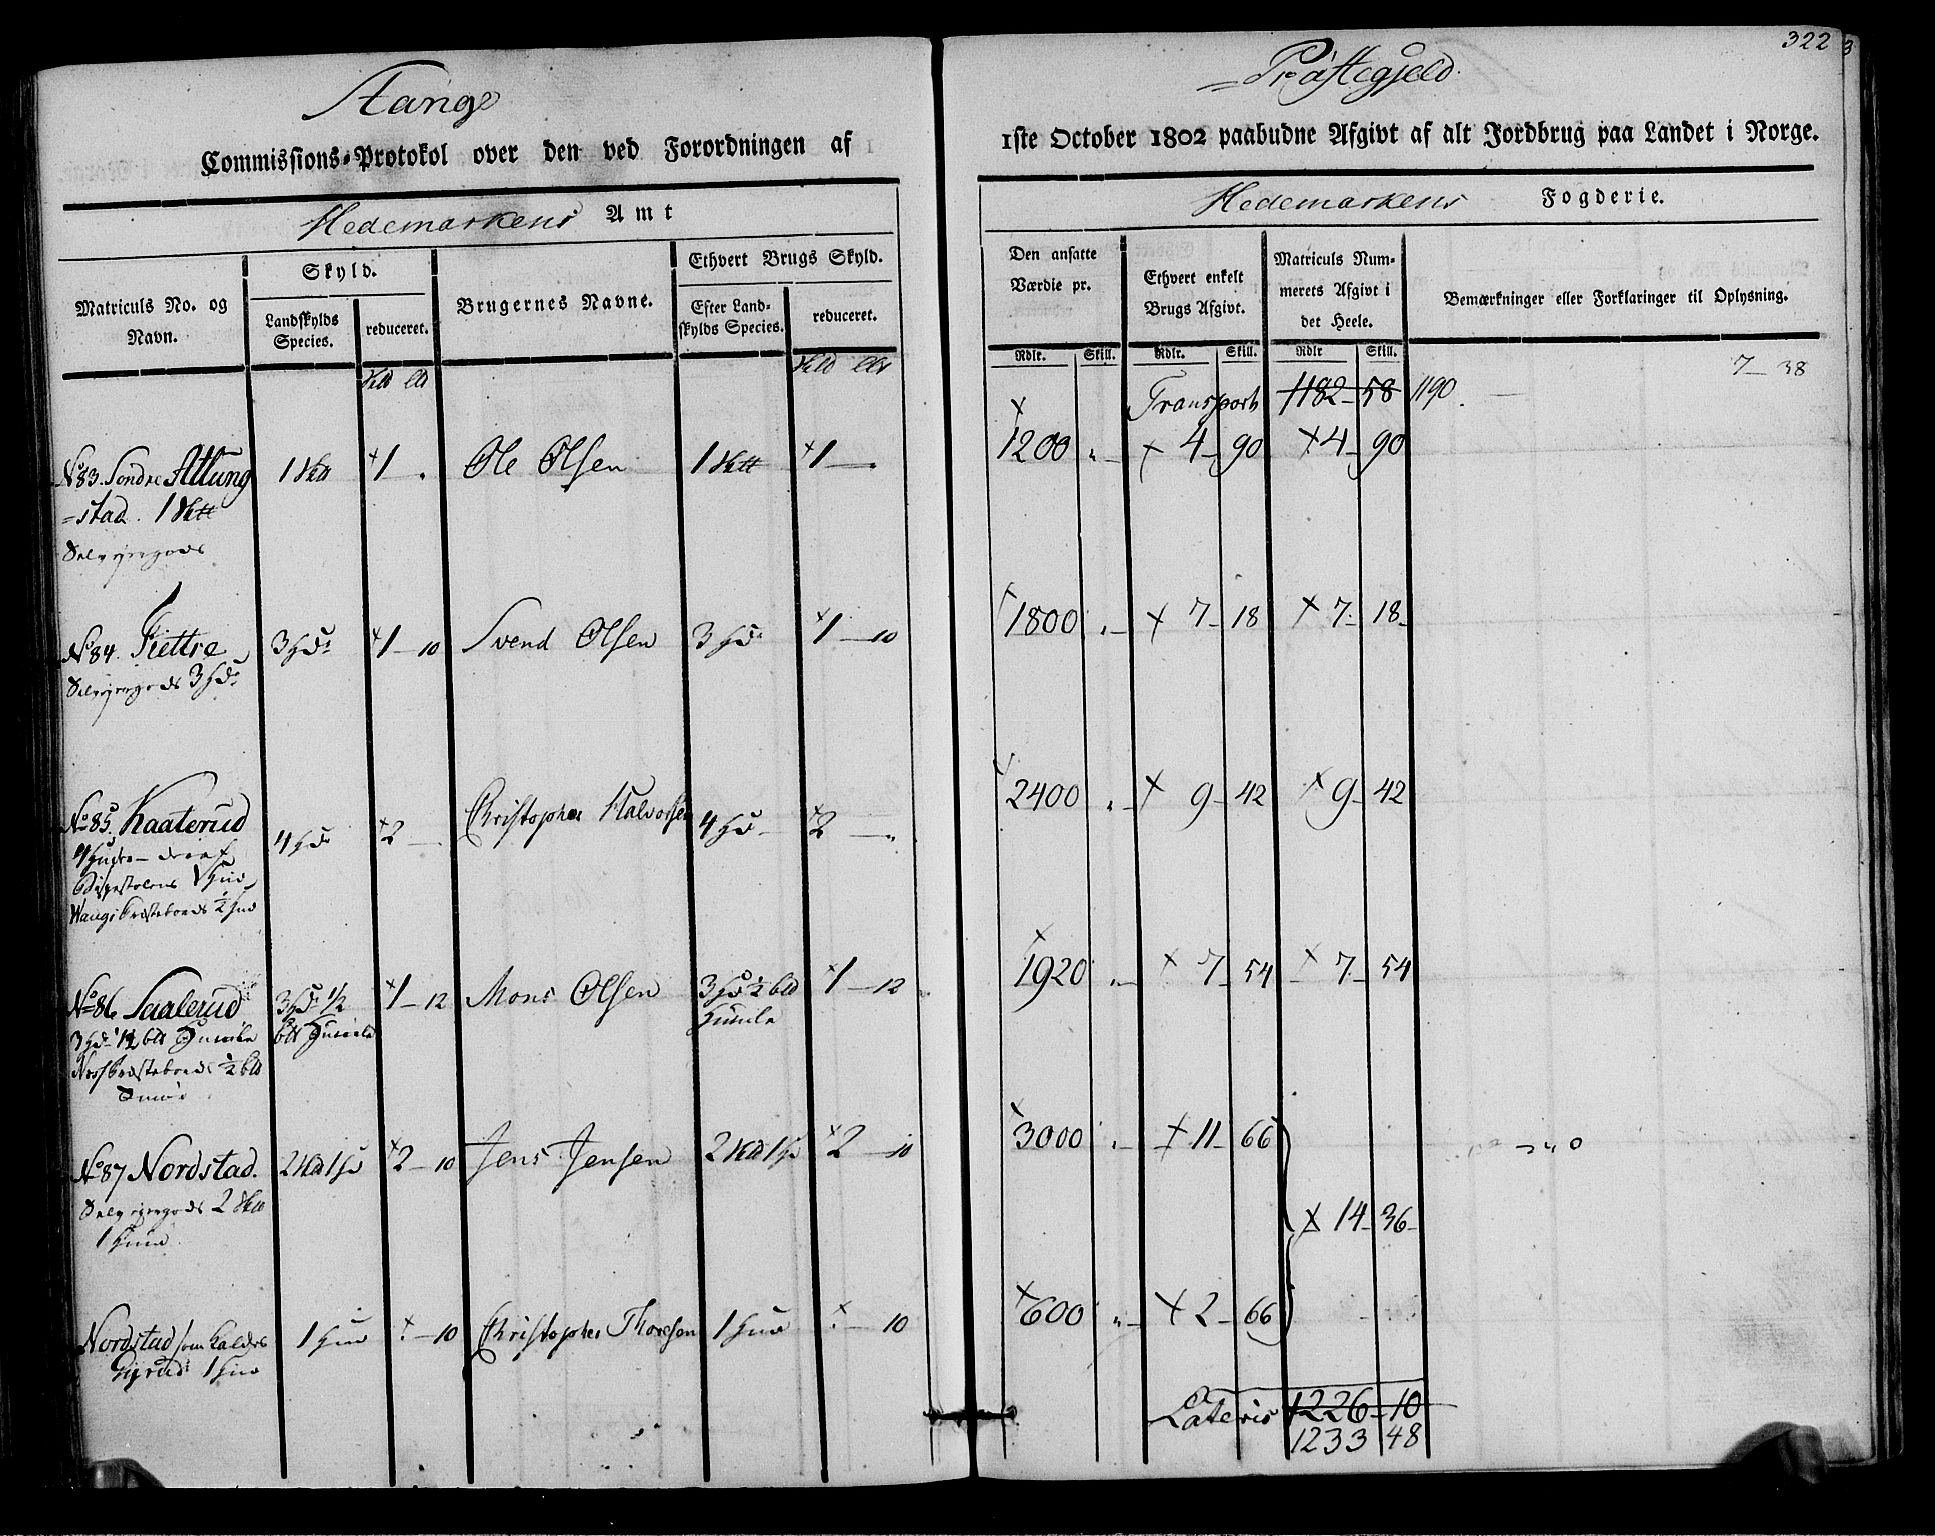 322
Stange
Præstegjeld
Commissions-Protokol over den ved Forordningen af
1ste October 1802 paabudne Afgivt af alt Jordbrug paa Landet i Norge.
Hedemarkens Amt
Hedemarkens Fogderie.
Matriculs No. og Navn.
Skyld.
Landskylds Species.
reduceret.
Brugernes Navne.
Ethvert Brugs Skyld.
Efter Land-
skylds Species.
reduceret.
Den ansatte
Værdie pr.
Ethvert enkelt
Brugs Afgivt.
Matriculs Num-
merets Afgivt i
det Heele.
Bemærkninger eller Forklaringer til Oplysning.
Rdlr. Skill. Rdlr. Skill. Rdlr Skill.
Transport 1182 - 58 1190 7 - 38
No 83. Søndre Atlung 1 1 Ole Olsen 1 1 1200 4 - 90 4 - 90
=stad. 1
Selveyergods
No 84. Fiettre 3 Hd 1 - 10 Svend Olsen 3 Hd 1 - 10 1800 7 - 18 7 - 18
Selveyergods 3 Hd
No 85. Kaaterud 4 Hd 2 Christopher Halvorsen 4 Hd 2 2400 9 - 42 9 - 42
4 Huder - deraf
Bispestolens 1 Hud
Wangs Præsteboeds 1/2 Hud
No 86 Saalerud 3 Hd 1/2 1 - 12 Mons Olsen 3 Hd 1/2 1 - 12 1920 7 - 54 7 - 54
Humle
Præsteboeds 1/2
Smør
No 87 Nordstad. 2 1 Hud 2 - 10 Jens Jensen 2 1 Hd 2 - 10 3000 11 - 66
Selveyergods 2
1 Hud
14 - 36
Nordstad som kaldes 1 Hud 10 Christopher Thoresen 1 Hud 10 600 2 - 66
1 Hud
Lateris 1226 - 10
1233 48